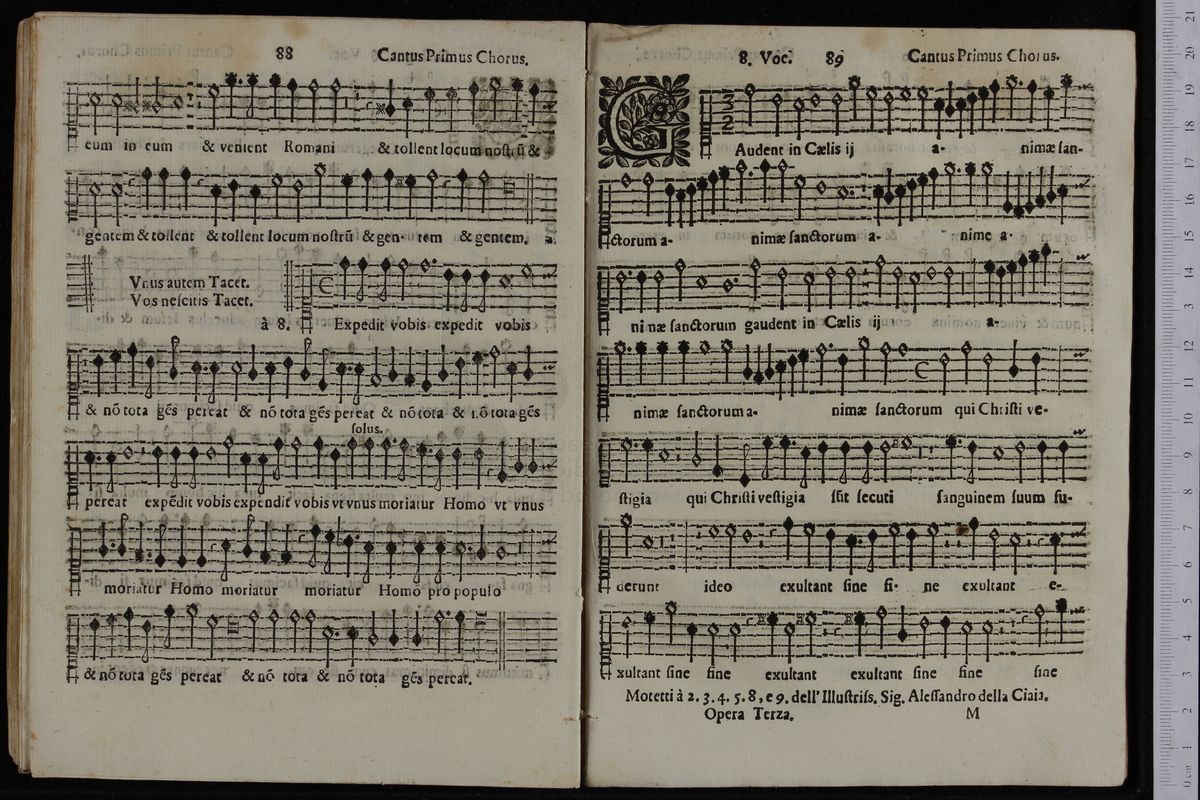 88 Cantus Primus Chorus.
eum in eum & venient Romani & tollent locum noſtrũ &
gentem & tollent & tollent locum noſtrũ & gen- tem & gentem. a
Vnus autem Tacet.
Vos neſcitis Tacet.
à 8. Expedit vobis expedit vobis
& nõ tota gẽs pereat & nõ tota gẽs pereat & nõ tota & nõ tota gẽs
ſolus.
pereat expẽdit vobis expendit vobis vt vnus moriatur Homo vt vnus
moriatur Homo moriatur moriatur Homo pro populo
& nõ tota gẽs pereat & nõ tota & nõ tota gẽs pereat.
8. Voc. 89 Cantus Primus Chorus.
G
3
2
Audent in Cælis ij a- nimæ ſan-
ctorum a- nimæ ſanctorum a- nime a-
nimæ ſanctorum gaudent in Cælis ij a-
nimæ ſanctorum a- nimæ ſanctorum qui Chriſti ve-
ſtigia qui Chriſti veſtigia ſũt ſecuti ſanguinem ſuum fu-
derunt ideo exultant ſine fi- ne exultant e-
xultant ſine fine exultant exultant ſine fine ſine
Motetti à 2. 3. 4. 5. 8, e 9. dell' Illuſtriſs. Sig. Aleſſandro della Ciaia.
Opera Terza. M